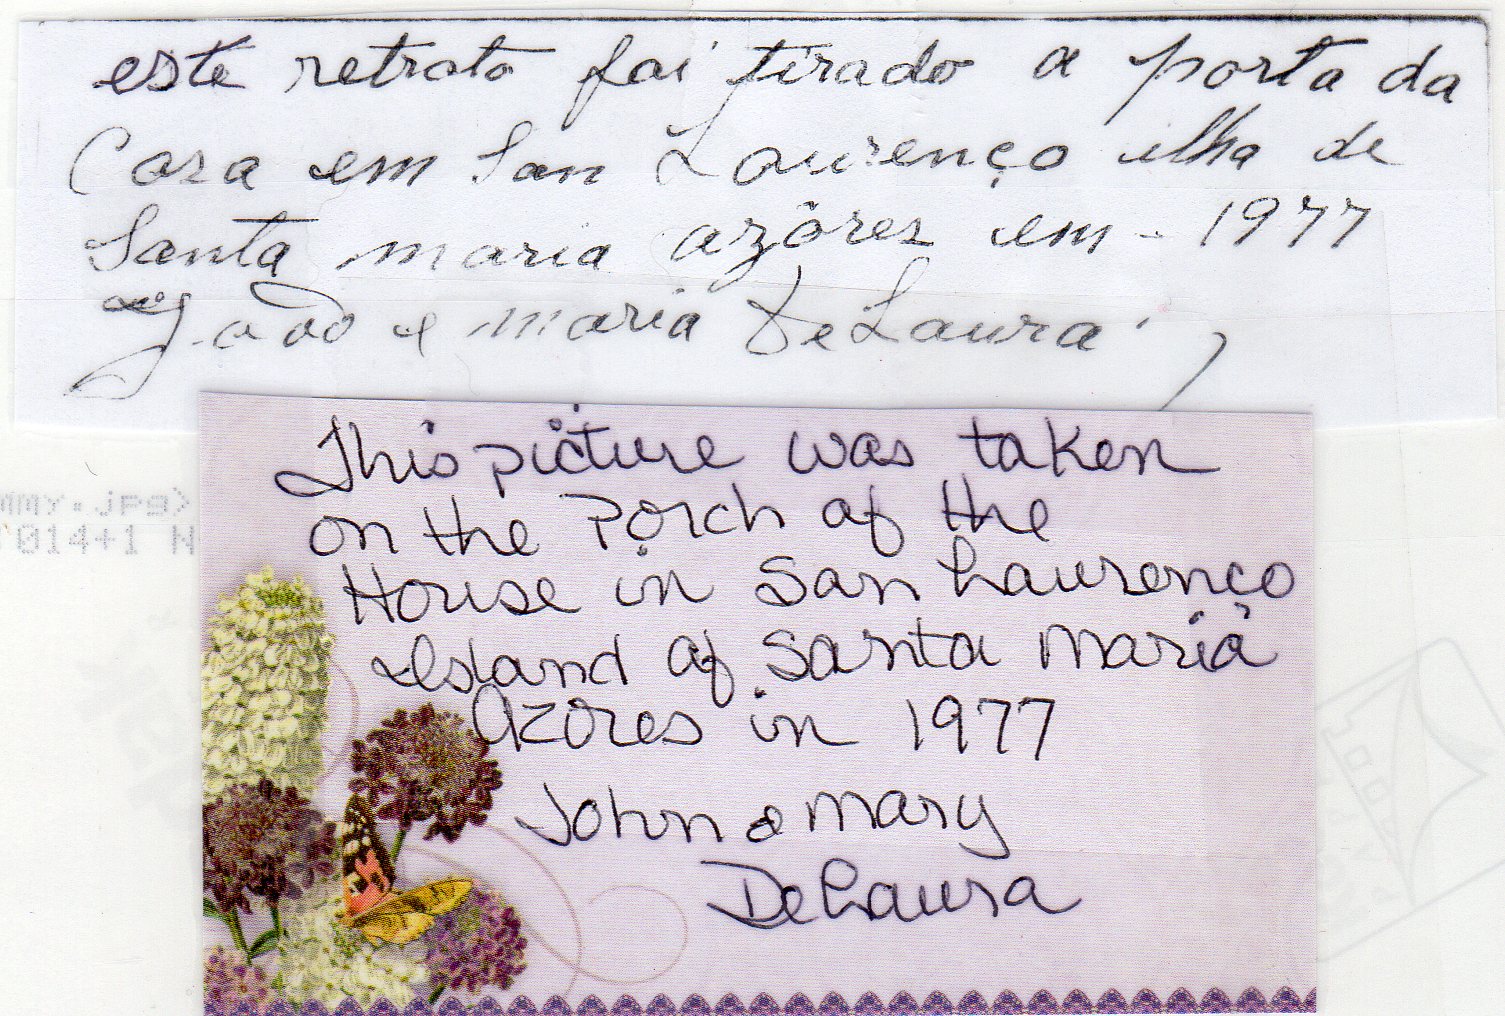 este retrato foi tirado a porta da
Casa em San Lourenço ilha de
Santa maria azôres em - 1977
João e maria DeLaura
This picture was taken
on the Porch of the
House in San Laurenço
Island of Santa Maria
Azores in 1977
John & Mary
DeLaura
mmy.jpg>
014+1 N